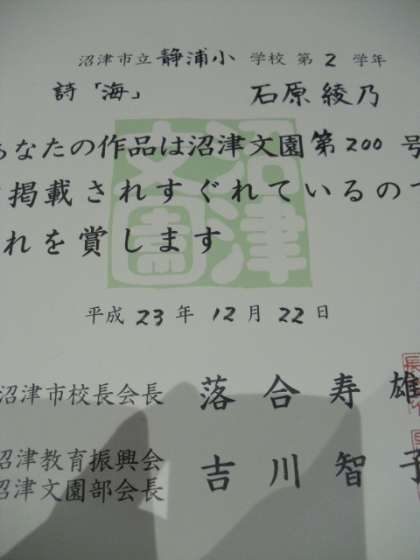 沼津市立静浦小学校 第2学年
詩「海」 石原綾乃
あなたの作品は沼津文園第200号
掲載されすぐれているので
れを賞します
沼津文園
平成23年12月22日
沼津市校長会長 落合寿雄
沼津教育振興会
沼津文園部会長 吉川智子